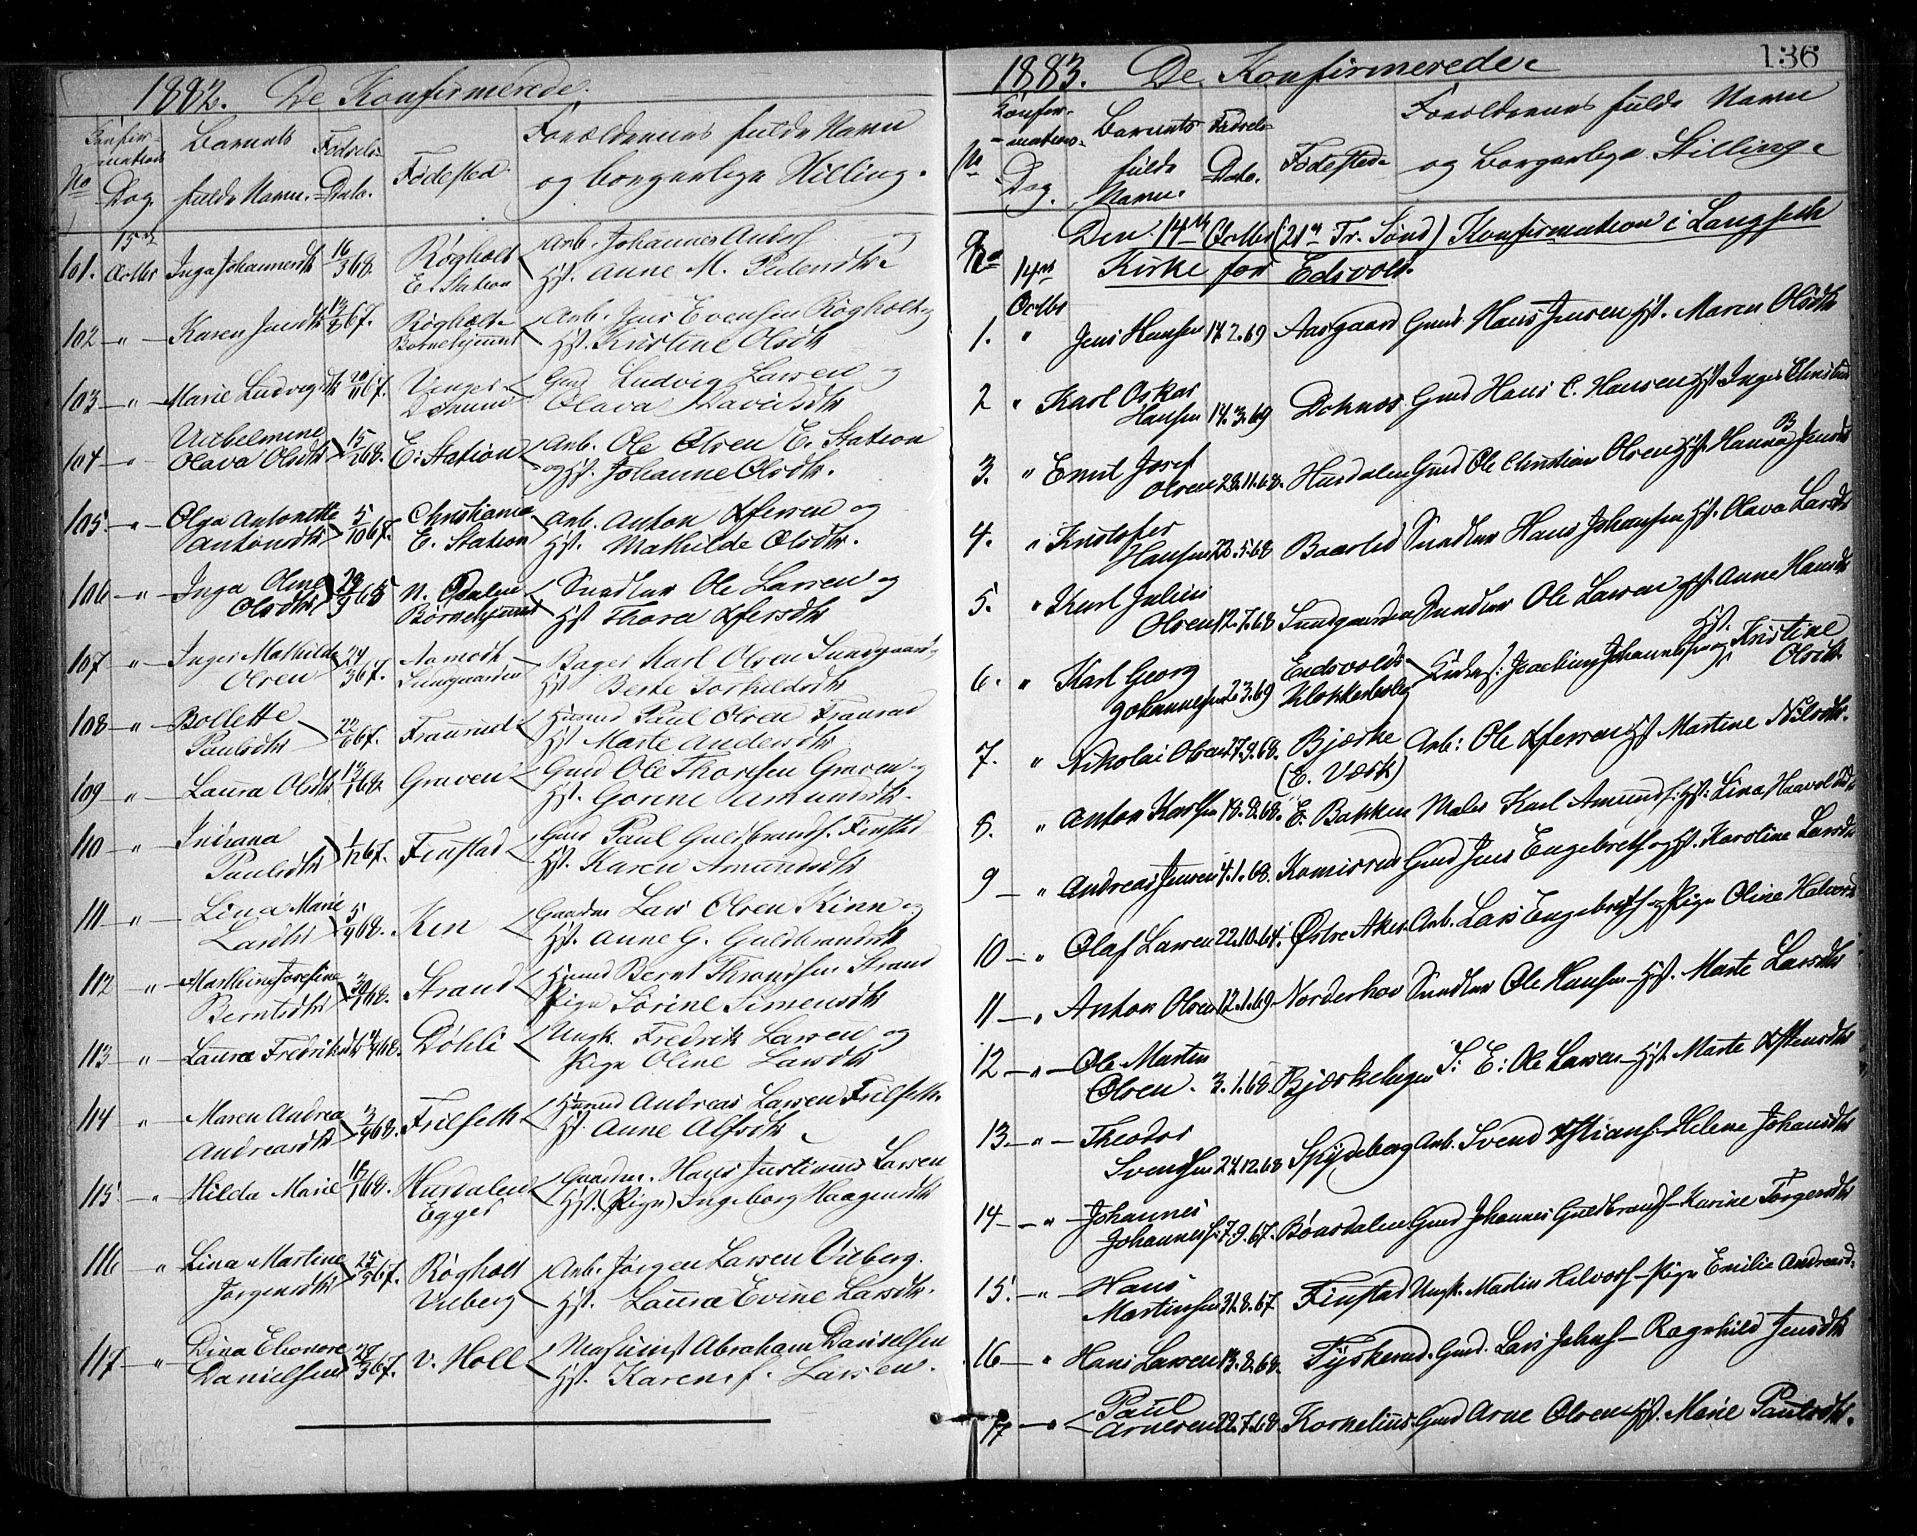 1882. De Konfirmerede.
No
Konfir-
mations
Dag.
Barnets
fulde Navn.
Fødsels-
Dato.
Fødested.
Forældrenes fulde Navn
og borgerlige Stilling.
101. 15de Octbr Inga Johannesdtr 16/3 68. Røgholt E. Station Arb. Johannes Anders og Hst. Anne M. Pedersdtr.
102 " Karen Jensdtr 67. Røgholt Børnehjemmet Arb. Jens Evensen Røgholt og Hst. Kristine Olsdtr
103 " Marie Ludvigsdtr 67. Gmd Ludvig Larsen og Olava Davidsdtr
104 " Vilhelmine Olava Olsdtr 15/2 68. E. Station Arb. Ole Olsen E. Station og Hst. Johanne Olsdtr.
105. " Olga Antonette Antonsdtr 5/10 67. Christiania E. Station Arb. Anton og Hst. Mathilde Olsdtr.
106 " Inga Oline Olsdtr 29/9 65 N. Odalen Børnehjemmet Snedker Ole Larsen og Hst Thora
107 " Inger Mathilde Olsen 24/3 67. Sundgaarden Bager Karl Olsen Sundgaard Hst Berte Torkildsdtr
108 " Bollette Paulsdtr 67. Framrud Husmd Paul Olsen Framrud Hst Marte Andersdtr
109 " Laura Olsdtr 68. Graven Gmd Ole Thoresen Graven og Hst. Gorine Amundsdtr.
110 " Indiana Paulsdtr 1/12 67. Finstad Gmd Paul Guldbrands. Finstad Hst. Karen Amundsdtr
111 " Lina Marie Larsdtr 5/4 68. Kin Lars Olsen Kinn og Hst. Anne G. Guldbrandsdtr
112 " Josefine Berntsdtr 68. Strand Husmd Bernt Throndsen Strand Pige Sørine Simensdtr
113 " Laura Fredriksdtr 68. Døhli Ungk. Fredrik Larsen og Pige Oline Larsdtr
114 " Maren Andrea Andreasdtr 3/4 68. Frilseth Husmd Andreas Larsen Frilseth. Hst. Anne Alfsdtr
115 " Hilda Marie 18/1 68. Hurdalen Egger Hans Justinus Larsen Hst. (Pige) Ingeborg Haagensdtr
116 " Lina Martine Jørgensdtr 25/3 67. Røgholt Vilberg Arb. Jørgen Larsen Vilberg. Hst. Laura Evine Larsdtr.
117 " Dina Elionore Danielsen 67. V. Holl Maskinist Abraham Danielsen Hst. Karen f. Larsen.
1883. De Konfirmerede.
136
No
Konfir-
mations-
Dag.
Barnets
fulde
Navn.
Fødsels-
Dato.
Fødested.
Forældrenes fulde Navn
og borgerlige Stilling.
Den 14de Octbr (21de Tr. Sønd) Konfirmation i Langseth
Kirke for Edsvold.
No 14de Octbr
1. " Jens Hansen 14.2.69 Aasgaard Gmd. Hans Jensen Hst. Maren Olsdtr
2 " Karl Oskar Hansen 14.3.69 Doknes Gmd Hans C. Hansen Hst Inger
3. " Emil Josef Olsen 28.11.68. Hurdalen Gmd Ole Christian Olsen Hst. Hanna B Jensdtr
4. " Kristofer Hansen 22.5.68 Baarlid Snedker Hans Johansen Hst. Olava Larsdtr
5. " Karl Julius Olsen 12.7.68 Sundgaarden Snedker Ole Larsen Hst. Anne Hansdtr
6. " Karl Georg Johannesen 2.3.69 Eidsvolds Klokkerbolig Joachim Johannessen Hst. Kristine Olsdtr.
7. " Nikolai Olsen 27.9.68. Bjørke (E. Værk) Arb: Ole Hst Martine Nilsdtr.
8. " Anton Karlsen 18.8.68. E. Bakken Maler Karl Amunds. Hst. Lina Haavoldsdtr
9 " Andreas Jensen 4.1.68. Komisrud Gmd Jens Engebretsen og Hst. Karoline Larsdtr
10 " Olaf Larsen 22.10.64. Østre Aker Arb. Lars Engebrets og Pige Oline Halvorsd
11 " Anton Olsen 12.1.69 Norderhov Snedker Ole Hansen Hst. Marte Larsdtr
12 " Ole Martin Olsen. 3.1.68. Bjørkebogen S: E: Ole Larsen Hst. Marte
13 " Theodor Svendsen 24.12.68 Spydeberg Arb. Svend Helene Johansdtr
14 " Johannes Johannes. 7.9.67. Bønsdalen Gmd Johannes Guldbrands Karine Torgersdtr
15. " Hans Martinsen 31.8.67 Finstad Ungk. Martin Halvors Pige Emilie Andreasd.
16 " Hans Larsen 13.8.68. Tyskerud. Gmd. Lars Johs Ragnhild Jensdtr
17 " Paul Arnesen 22.7.68. Kornelius Gmd Arne Olsen Hst. Marie Paulsdtr.